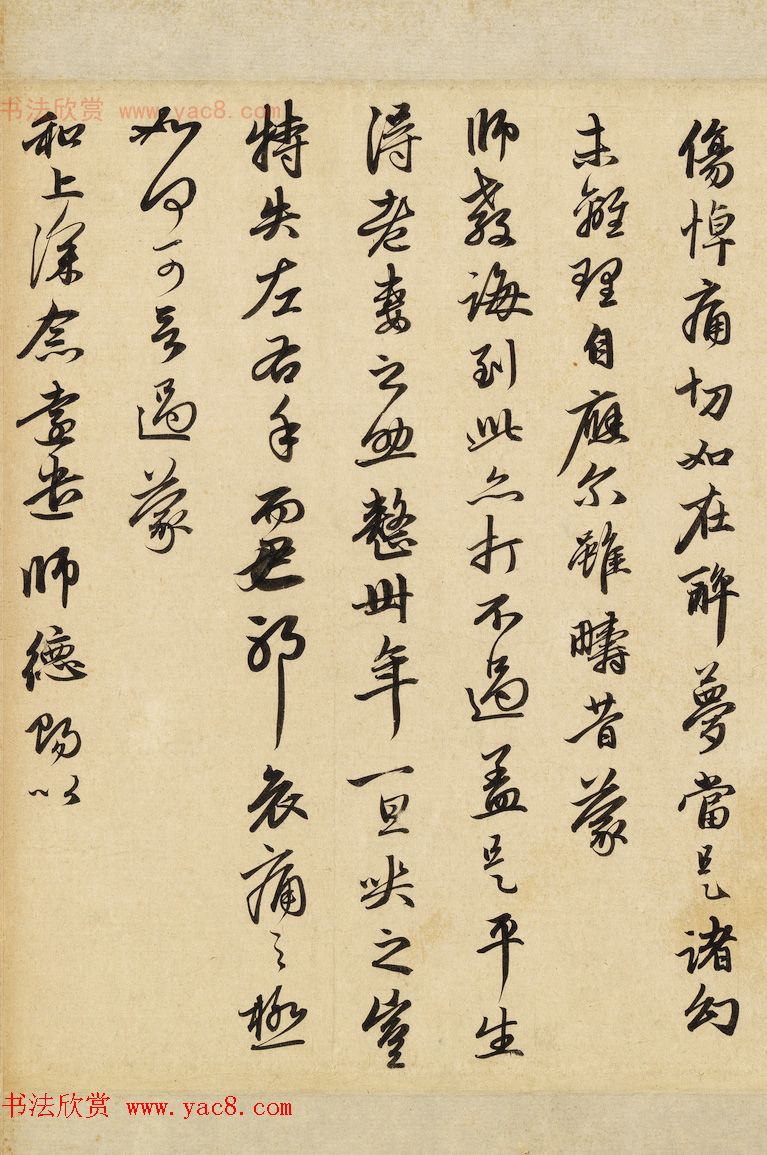 傷悼痛切如在醉夢當是諸幻
未離理自應尔雖疇昔蒙
師教誨到此亦打不過蓋是平生
得老妻之助整卅年一旦哭之豈
特失左右手而已耶哀痛之極
如何可言過蒙
和上深念遠遣師德賜以
书法欣赏 www.yac8.com
书法欣赏 www.yac8.com